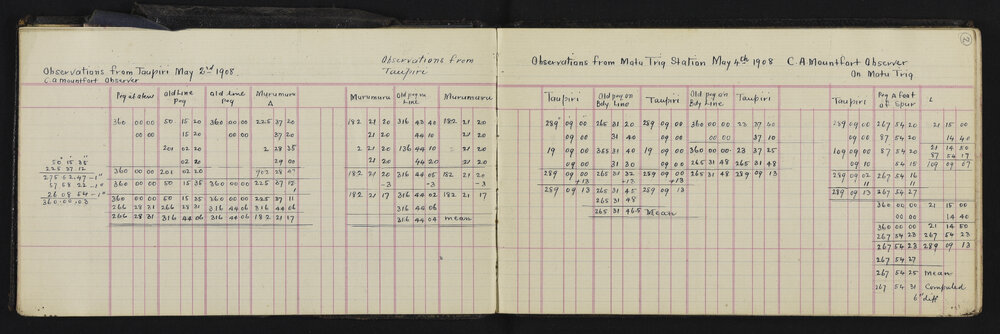 Observations from Taupiri May 2nd 1908
C.A. Mountfort Observer
Observations from
Taupiri
Peg at skew Old Line Peg Old Line Peg Murumuru Δ
360 00 00 50 15 20 360 00 00 225 37 20
00 00 15 20 00 00 37 20
201 02 20 2 28 35
02 20 29 00
360 00 00 201 02 20 902 28 07
360 00 00 50 15 35 360 00 00 225 37 12
360 00 00 50 15 35 360 00 00 225 37 11
266 28 31 266 28 31 316 44 06 316 44 06
266 28 31 316 44 06 316 44 06 182 21 17
50 15 35
225 37 12
275 52 47 -1"
67 58 22 -1"
26 08 54 -1"
360 00 03
Murumuru Old peg on Line Murumuru
182 21 20 316 43 40 182 21 20
21 20 44 10 21 20
2 21 20 136 44 10 2 21 20
21 20 44 20 21 20
182 21 20 316 44 05 182 21 20
-3 -3 -3
182 21 17 316 44 02 182 21 17
316 44 06
316 44 04 mean
Observations from Matu Trig Station May 4th 1908 C.A. Mountfort Observer
On Matu Trig
2
Taupiri Old peg on Bdy Line Taupiri Old peg on Bdy Line Taupiri
289 09 00 265 31 20 289 09 00 360 00 00 23 37 00
09 00 31 40 09 00 00 00 37 10
19 09 00 355 31 40 19 09 00 360 00 00 23 37 25
09 00 31 30 09 00 265 31 48 265 31 48
289 09 00 265 31 32 289 09 00 265 31 48 289 09 13
+13 +13 +13
289 09 13 265 31 45 289 09 13
265 31 48
265 31 46.5 Mean
Taupiri Peg A foot of Spur L
289 09 00 267 54 20 21 15 00
09 00 87 54 20 14 40
109 09 00 87 54 20 21 14 50
09 10 54 15 87 54 17
109 09 07
289 09 02 267 54 16
11 11
289 09 13 267 54 27
360 00 00 21 15 00
00 00 14 40
360 00 00 21 14 50
267 54 23 267 54 23
267 54 23 289 09 13
267 54 27
267 54 25 Mean
267 54 31 Computed
6" diff